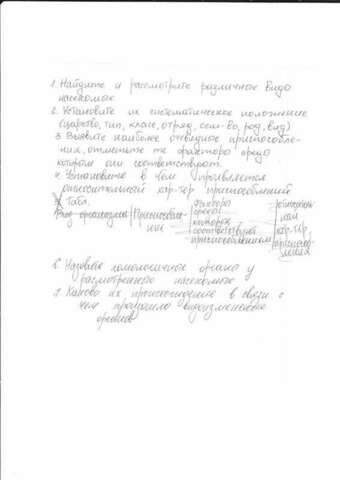 1. Найдите и рассмотрите различное видо
насекомых
2. Установите их систематическое положение
(царство, тип, класс, отряд, сем-во, род, вид)
3. Выявите наиболее очевидное приспособле-
ния, отметьте те фактора среды
котором они соответствуют
4. Установите в чем проявляется
относительный хар-тер приспособлений
5. Табл.
Вид организма | Приспособле- | фактора | относитель
ние | среды | ный
которым | хар-тер
соответствуют | приспособ
приспособлением | ления
6. Назовите гомологичное органы у
рассмотренного насекомого
7. Каково их происхождение в связи с
чем произошло видоизменение
органов